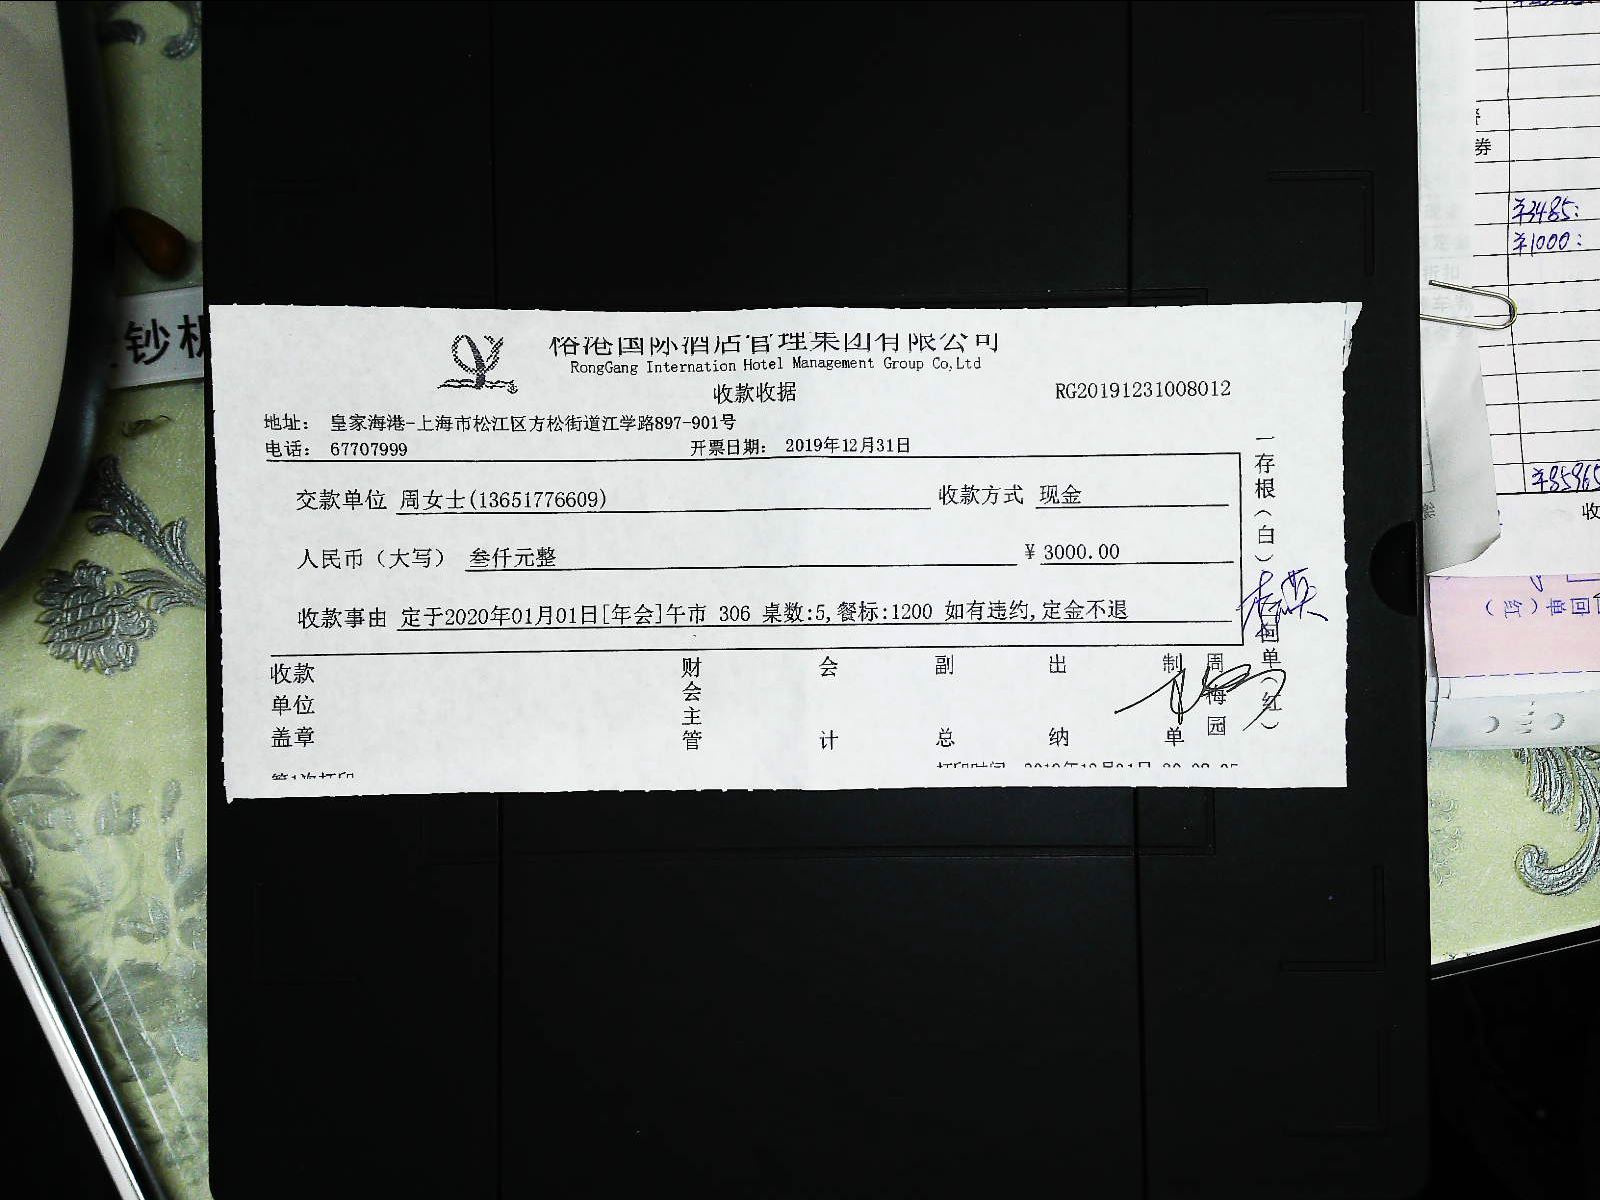 榕港国际酒店管理集团有限公司
RongGang Internation Hotel Management Group Co,Ltd
收款收据 RG20191231008012
地址： 皇家海港-上海市松江区方松街道江学路897-901号
电话： 67707999 开票日期： 2019年12月31日
交款单位 周女士(13651776609) 收款方式 现金
人民币（大写） 叁仟元整 ¥ 3000.00
收款事由 定于2020年01月01日[年会]午市 306 桌数:5,餐标:1200 如有违约,定金不退
收款单位盖章 财会主管 会计 副总 出纳 制单 周梅园
一存根（白） 回单（红）
第1次打印
钞机
券
¥3485:
¥1000:
收
回单（红）